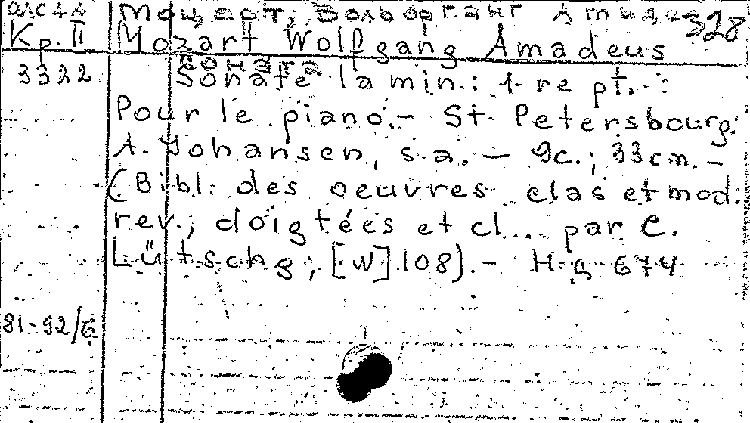 Моцарт, Вольфганг Амадей 328
Кр. II Mozart Wolfgang Amadeus
3322 Sonate la min.: 1-re pt. :
Pour le piano.- St. Petersbourg:
A. Johansen, s.a. - 9c.; 33cm. -
(Bibl. des oeuvres clas et mod.
rev., doigtées et cl... par C.
Lütschg; [W] 108). - Н-д-674
91-92/6